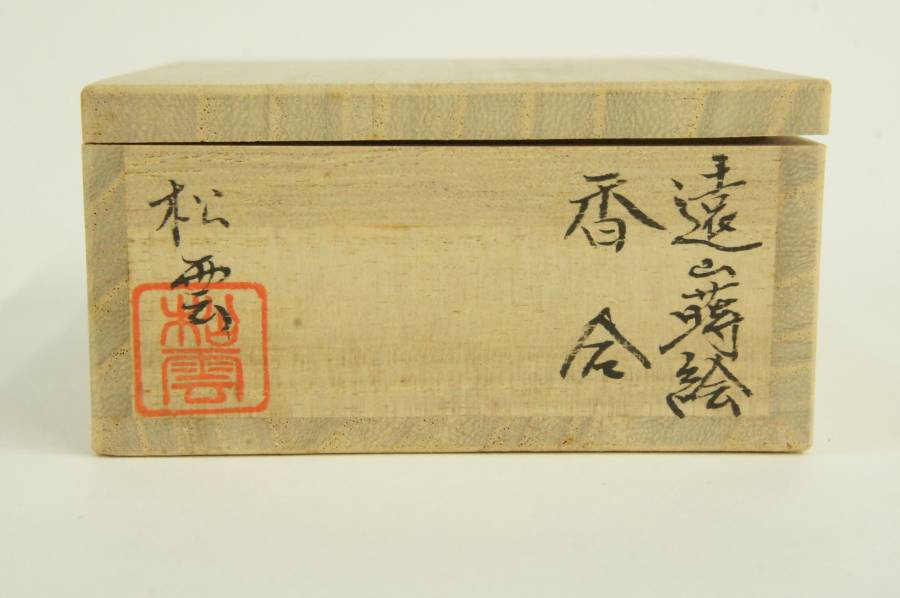 遠山蒔絵
香合
松雲
松雲